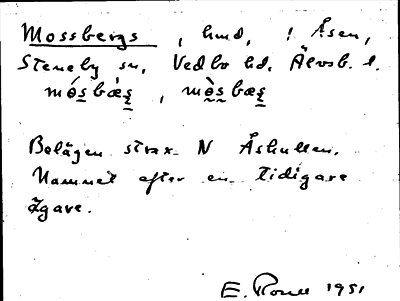 Mossbergs, hmd, ! Åsen,
Steneby sn, Vedbo hd. Älvsb. l.
mósbæş, mòsbæş
Belägen strax N Åskullen.
Namnet efter en tidigare
ägare.
E. 1951